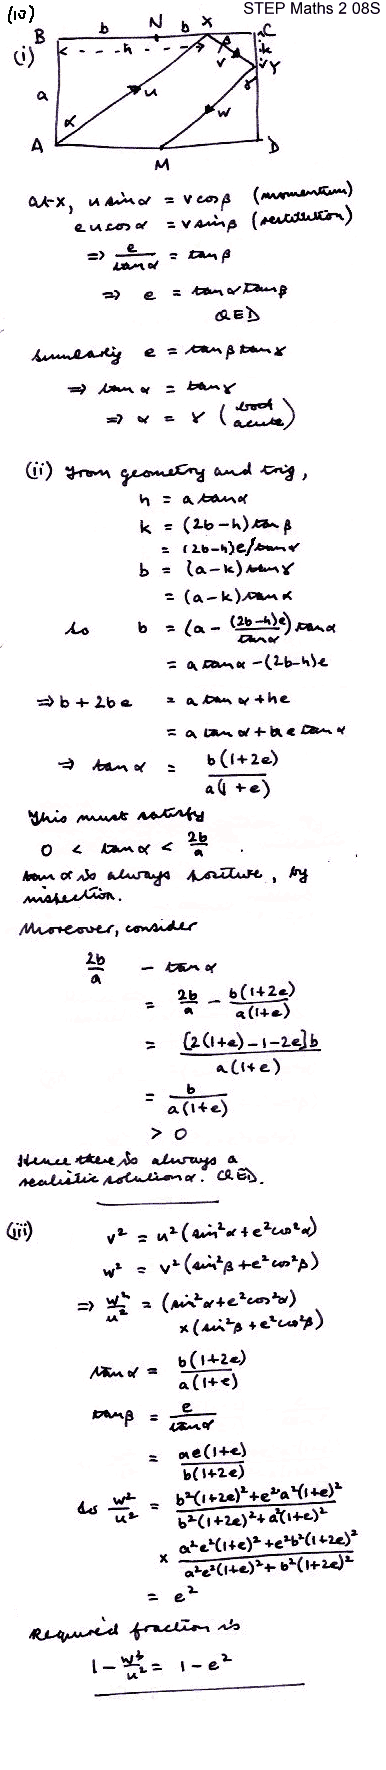 STEP Maths 2 08S
(10)
(i)
B b N b X C
h β k
v Y
a u γ
α w
A M D
at X, u sin α = v cos β (momentum)
e u cos α = v sin β (restitution)
⇒ e/tan α = tan β
⇒ e = tan α tan β
QED
Similarly e = tan β tan γ
⇒ tan α = tan γ
⇒ α = γ (both acute)
(ii) From geometry and trig,
h = a tan α
k = (2b-h) tan β
= (2b-h)e/tan α
b = (a-k) tan γ
= (a-k) tan α
So b = (a - (2b-h)e/tan α) tan α
= a tan α - (2b-h)e
⇒ b + 2be = a tan α + he
= a tan α + ae tan α
⇒ tan α = b(1+2e)/a(1+e)
This must satisfy
0 < tan α < 2b/a .
tan α is always positive, by
inspection.
Moreover, consider
2b/a - tan α
= 2b/a - b(1+2e)/a(1+e)
= [2(1+e)-1-2e]b/a(1+e)
= b/a(1+e)
> 0
Hence there is always a
realistic solution α. QED.
(iii) v² = u²(sin²α + e²cos²α)
w² = v²(sin²β + e²cos²β)
⇒ w²/u² = (sin²α + e²cos²α)
×(sin²β + e²cos²β)
tan α = b(1+2e)/a(1+e)
tan β = e/tan α
= ae(1+e)/b(1+2e)
So w²/u² = b²(1+2e)²+e²a²(1+e)²/b²(1+2e)²+a²(1+e)²
× a²e²(1+e)²+e²b²(1+2e)²/a²e²(1+e)²+b²(1+2e)²
= e²
Required fraction is
1 - w²/u² = 1 - e²